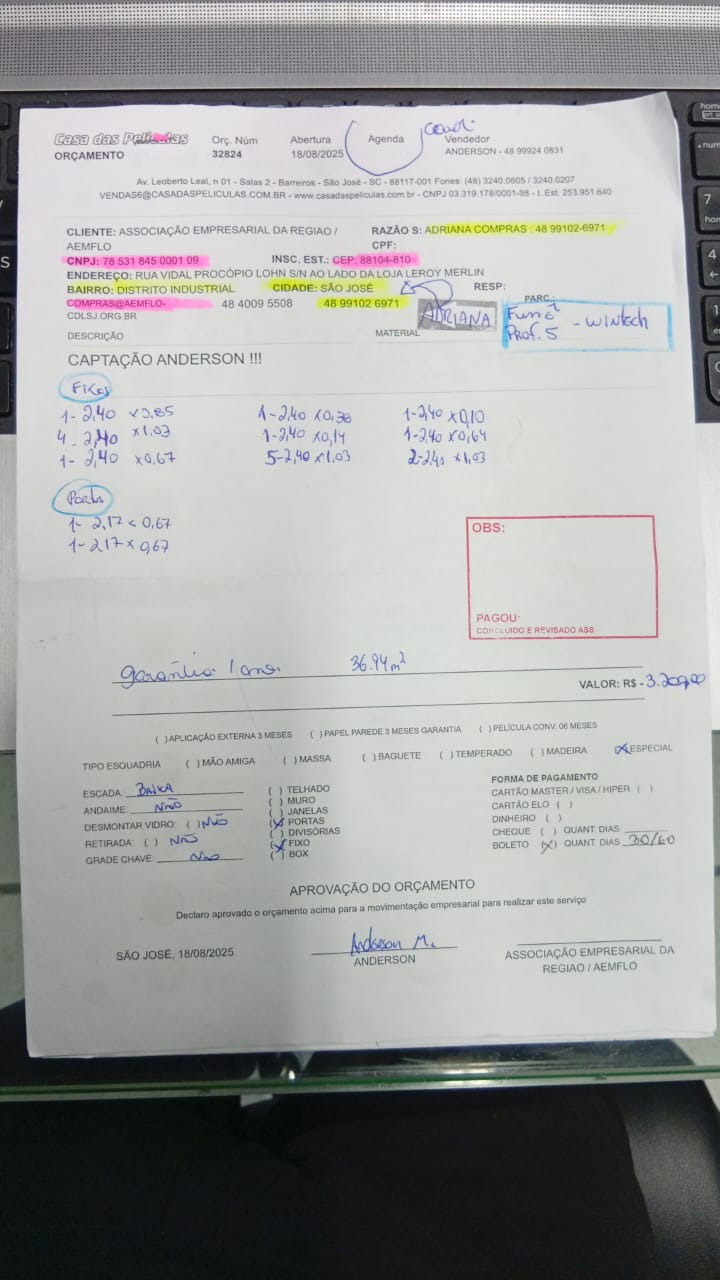 Casa das Películas
ORÇAMENTO
Orç. Núm
32824
Abertura
18/08/2025
Agenda
Vendedor
ANDERSON - 48 99924 0831
Av. Leoberto Leal, n 01 - Salas 2 - Barreiros - São José - SC - 88117-001 Fones: (48) 3240.0605 / 3240.0207
VENDAS6@CASADASPELICULAS.COM.BR - www.casadaspeliculas.com.br - CNPJ 03.319.178/0001-98 - I. Est. 253.951.640
CLIENTE: ASSOCIAÇÃO EMPRESARIAL DA REGIAO /
AEMFLO
RAZÃO S: ADRIANA COMPRAS : 48 99102-6971
CPF:
CNPJ: 78 531 845 0001 09
INSC. EST.: CEP: 88104-810
ENDEREÇO: RUA VIDAL PROCÓPIO LOHN S/N AO LADO DA LOJA LEROY MERLIN
BAIRRO: DISTRITO INDUSTRIAL
CIDADE: SÃO JOSÉ
RESP:
COMPRAS@AEMFLO-
CDLSJ.ORG.BR
48 4009 5508
48 99102 6971
ADRIANA
PARC.:
Fumê
Prof. 5 - WINtech
DESCRIÇÃO
MATERIAL
CAPTAÇÃO ANDERSON !!!
Fixos
1- 2,40 x 0,85 1-2,40 x 0,36 1-2,40 x 0,10
4- 2,40 x 1,03 1-2,40 x 0,14 1-2,40 x 0,64
1- 2,40 x 0,67 5-2,40 x 1,03 2-2,40 x 1,03
Porta
1- 2,17 x 0,67
1- 2,17 x 0,67
OBS:
PAGOU:
CONCLUIDO E REVISADO ASS
garantia 1 ano. 36.94 m²
VALOR: R$ - 3.200,00
( )APLICAÇÃO EXTERNA 3 MESES ( ) PAPEL PAREDE 3 MESES GARANTIA ( )PELÍCULA CONV. 06 MESES
TIPO ESQUADRIA ( )MÃO AMIGA ( )MASSA ( )BAGUETE ( )TEMPERADO ( )MADEIRA (X)ESPECIAL
ESCADA: BAIXA
ANDAIME: NÃO
DESMONTAR VIDRO: ( ) NÃO
RETIRADA: ( ) NÃO
GRADE CHAVE: Não
( ) TELHADO
( ) MURO
( ) JANELAS
(X) PORTAS
( ) DIVISÓRIAS
(X) FIXO
( ) BOX
FORMA DE PAGAMENTO
CARTÃO MASTER / VISA / HIPER ( )
CARTÃO ELO ( )
DINHEIRO ( )
CHEQUE ( ) QUANT. DIAS
BOLETO (X) QUANT. DIAS 30/60
APROVAÇÃO DO ORÇAMENTO
Declaro aprovado o orçamento acima para a movimentação empresarial para realizar este serviço
SÃO JOSÉ, 18/08/2025
Anderson M.
ANDERSON
ASSOCIAÇÃO EMPRESARIAL DA
REGIAO / AEMFLO
home
7
4